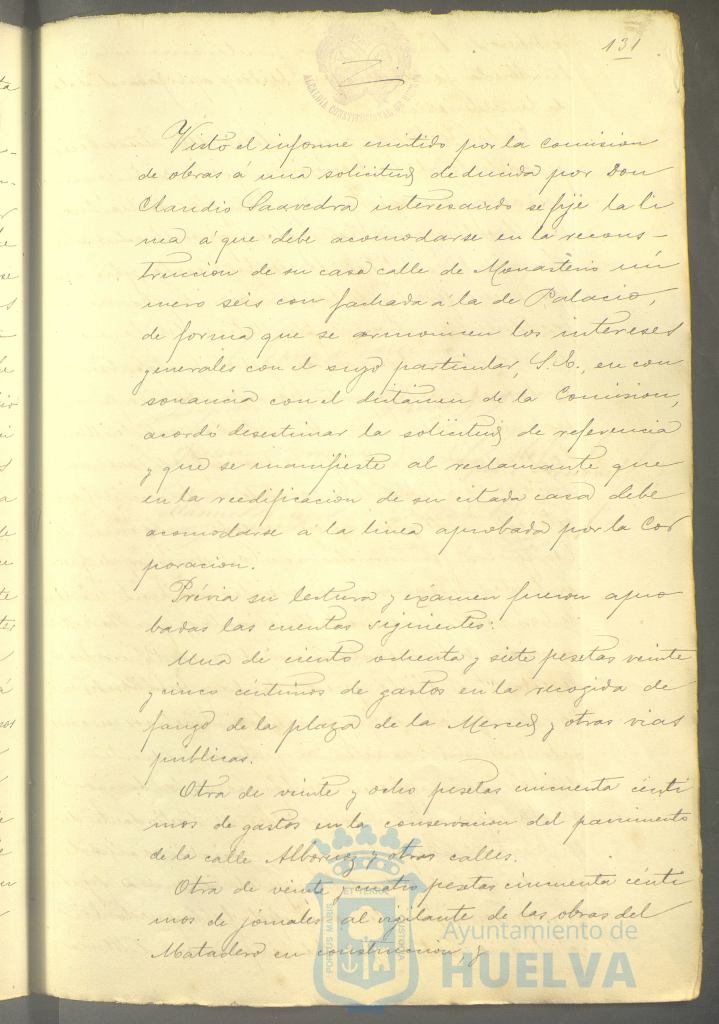 131
Visto el informe emitido por la comision
de obras á una solicitud deducida por Don
Claudio Saavedra interesando se fije la li
nea á que debe acomodarse en la recons-
truccion de su casa calle de Monasterio nú
mero seis con fachada á la de Palacio,
de forma que se armonicen los intereses
generales con el suyo particular, S. E., en con
sonancia con el dictámen de la Comision,
acordó desestimar la solicitud de referencia
y que se manifieste al reclamante que
en la reedificacion de su citada casa debe
acomodarse á la linea aprobada por la Cor
poracion.
Prévia su lectura y exámen fueron apro
badas las cuentas siguientes:
Una de ciento ochenta y siete pesetas veinte
y cinco céntimos de gastos en la recogida de
fango de la plaza de la Merced y otras vias
públicas.
Otra de veinte y ocho pesetas cincuenta cénti
mos de gastos en la conservacion del pavimento
de la calle Albornoz y otras calles.
Otra de veinte y cuatro pesetas cincuenta cénti
mos de jornales al vigilante de las obras del
Matadero en construccion, y
Ayuntamiento de
HUELVA